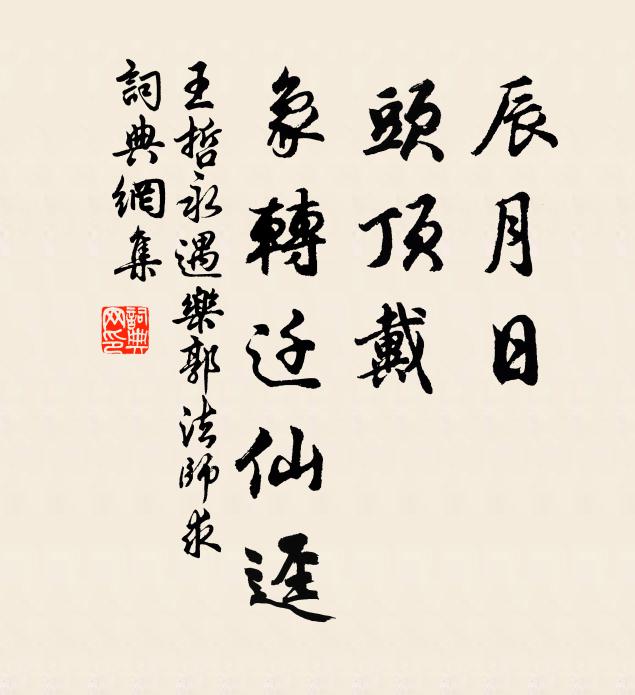 辰月日
頭頂戴
象轉迁仙逕
王哲永遇樂郭法師求
詞典網集
詞典
网印